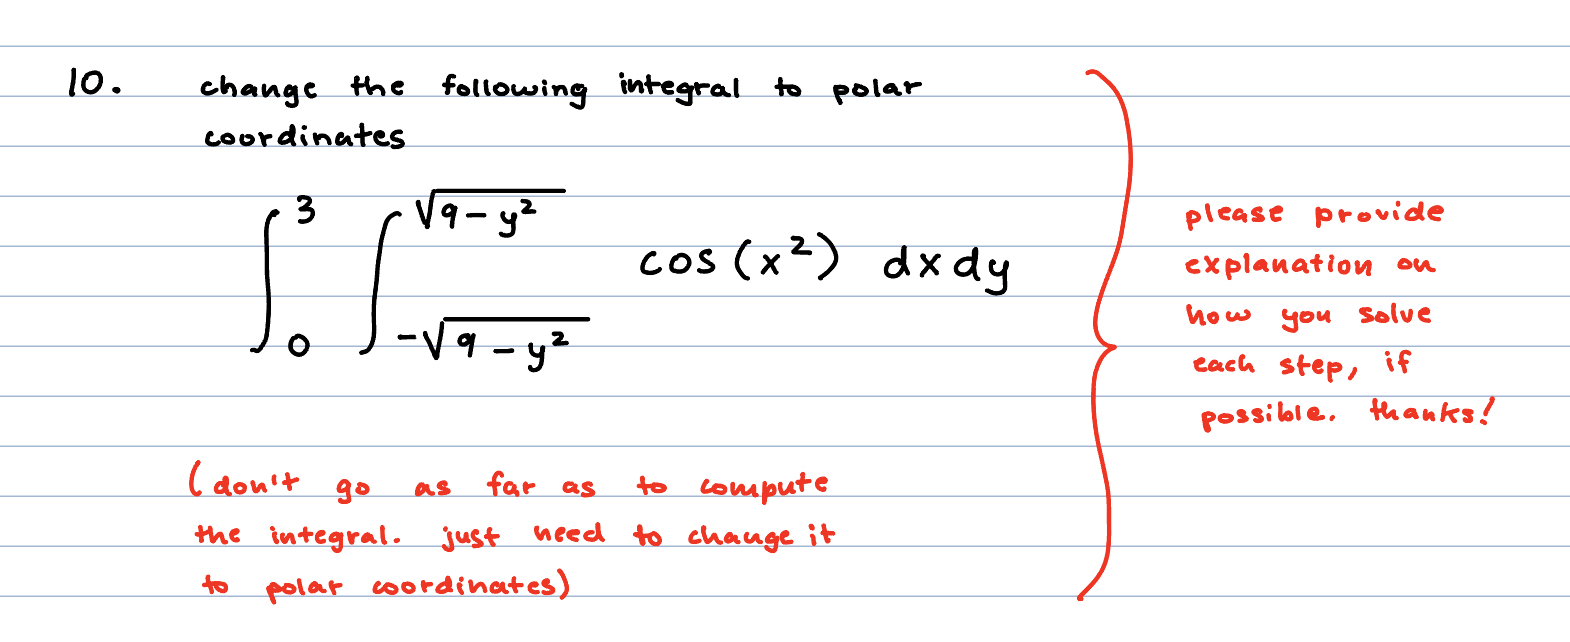 10. change the following integral to polar
coordinates
∫₀³ ∫_{-√(9-y²)}^{√(9-y²)} cos(x²) dx dy
please provide
explanation on
how you solve
each step, if
possible. thanks!
(don't go as far as to compute
the integral. just need to change it
to polar coordinates)